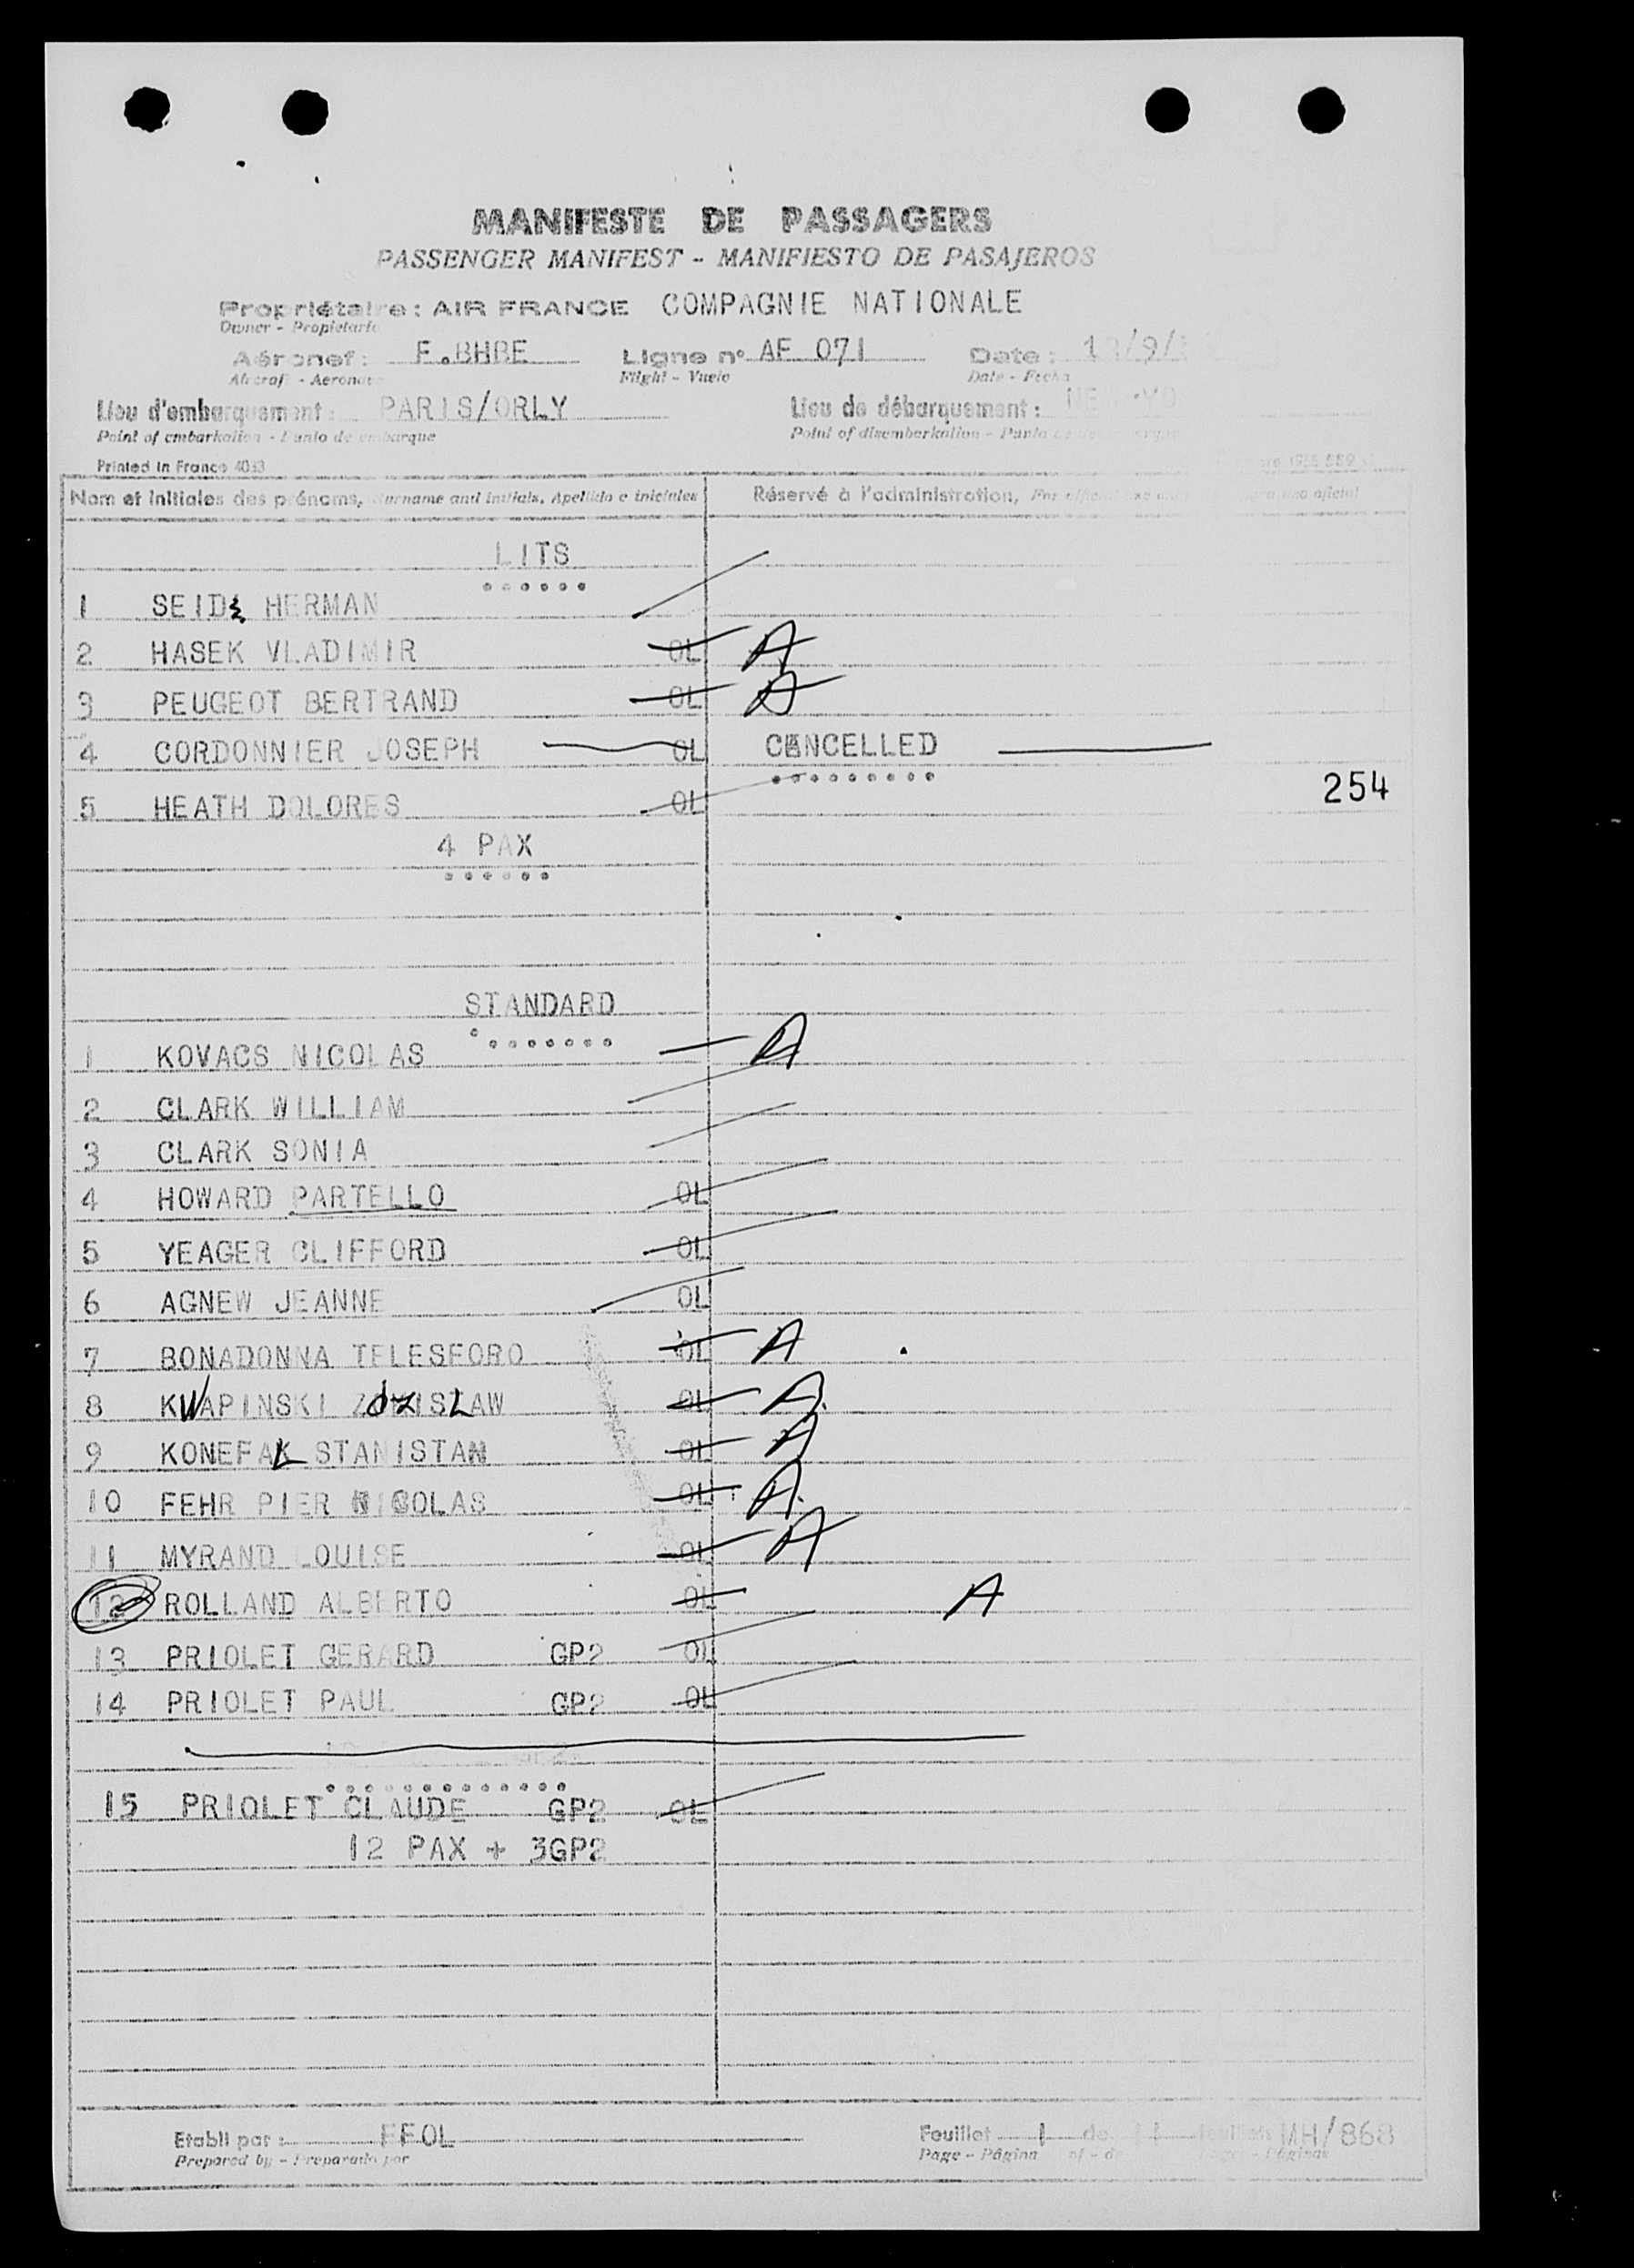 MANIFESTE DE PASSAGERS
PASSENGER MANIFEST - MANIFIESTO DE PASAJEROS
Propriétaire: AIR FRANCE COMPAGNIE NATIONALE
Owner - Propietario
Aéronef: F.BHBE Ligne n° AF 071 Date: /9/
Aircraft - Aeronave Flight - Vuelo Date - Fecha
Lieu d'embarquement: PARIS/ORLY Lieu de débarquement:
Point of embarkation - Punto de embarque Point of disembarkation - Punto
Printed in France 4033
Nom et initiales des prénoms, Surname and initials, Apellido e iniciales Réservé à l'administration, For official use uso oficial
LITS
1 SEID HERMAN
2 HASEK VLADIMIR OL A
3 PEUGEOT BERTRAND OL A
4 CORDONNIER JOSEPH OL CANCELLED
254
5 HEATH DOLORES OL
4 PAX
STANDARD
1 KOVACS NICOLAS A
2 CLARK WILLIAM
3 CLARK SONIA
4 HOWARD PARTELLO OL
5 YEAGER CLIFFORD OL
6 AGNEW JEANNE OL
7 BONADONNA TELESFORO OL A
8 KWAPINSKI OL A
9 KONEFAL STANISTAW OL A
10 FEHR PIER NICOLAS OL A
11 MYRAND LOUISE OL A
12 ROLLAND ALBERTO OL A
13 PRIOLET GERARD GP2 OL
14 PRIOLET PAUL GP2 OL
15 PRIOLET CLAUDE GP2 OL
12 PAX + 3GP2
Etabli par: FFOL Feuillet 1 de feuillets MH/868
Prepared by - Preparado por Page - Página of - de Páginas